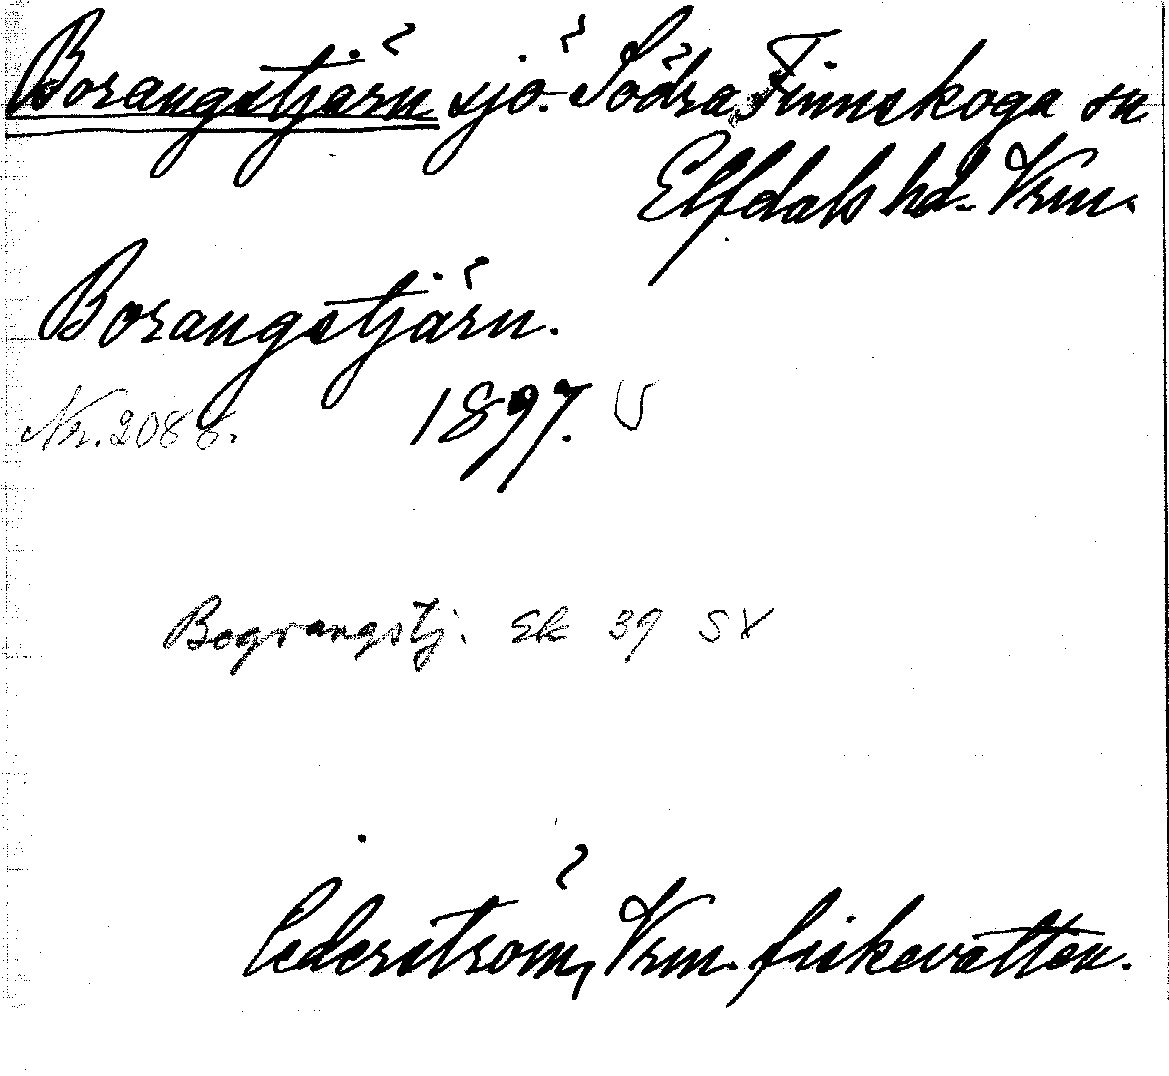 Borangstjärn sjö. Södra Finnskoga sn
Elfdals hd. Vrm.
Borangstjärn.
Nr. 2088. 1897.
Bograngstj. Ek 39 SV
Cederström, Vrm. fiskevatten.